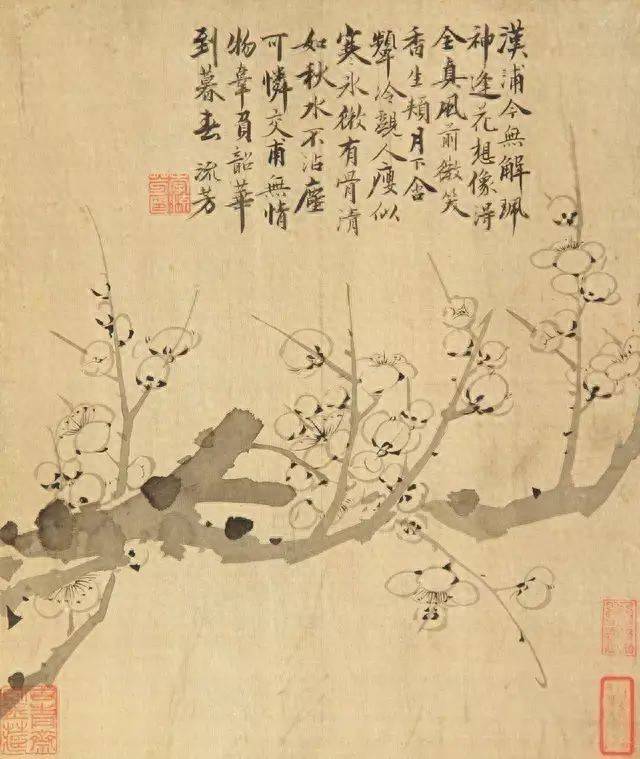 漢浦今無解珮
神逢花想像得
全真風前微笑
香生頰月下含
顰冷覷人瘦似
寒氷微有骨清
如秋水不沾塵
可憐交甫無情
物辜負韶華
到暮春 流芳